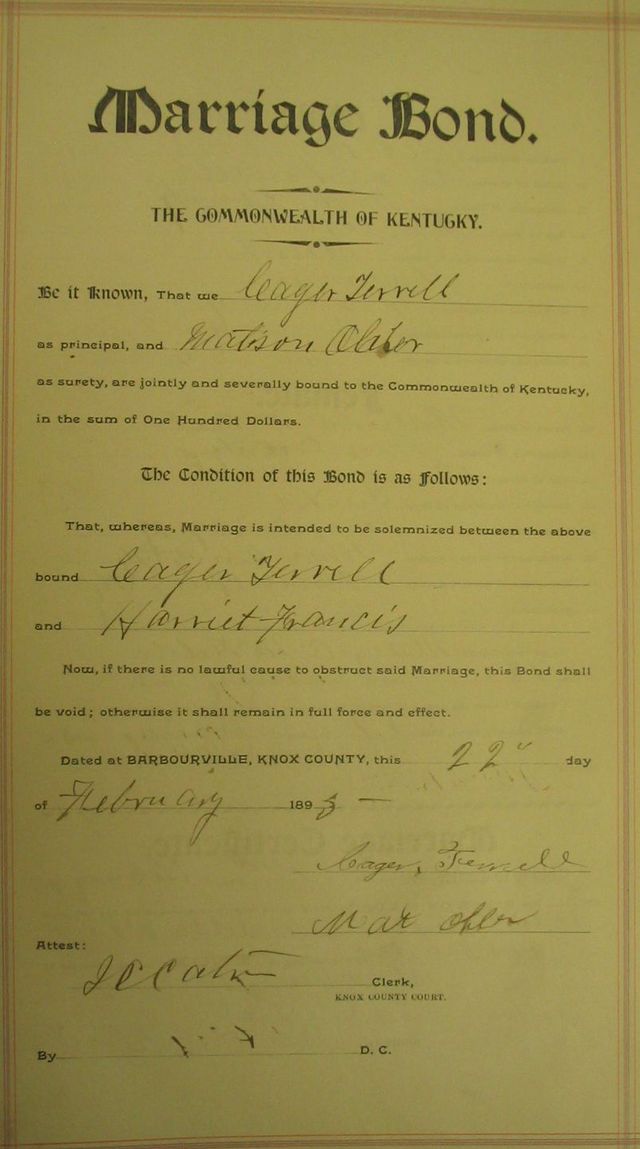 Marriage Bond.
THE COMMONWEALTH OF KENTUCKY.
Be it Known, That we Cager Terrell
as principal, and Matison
as surety, are jointly and severally bound to the Commonwealth of Kentucky,
in the sum of One Hundred Dollars.
The Condition of this Bond is as Follows:
That, whereas, Marriage is intended to be solemnized between the above
bound Cager Terrell
and Harriet Francis
Now, if there is no lawful cause to obstruct said Marriage, this Bond shall
be void; otherwise it shall remain in full force and effect.
Dated at BARBOURVILLE, KNOX COUNTY, this 22 day
of February 1893
Cager Terrell
Mat
Attest:
Clerk,
KNOX COUNTY COURT.
By D. C.